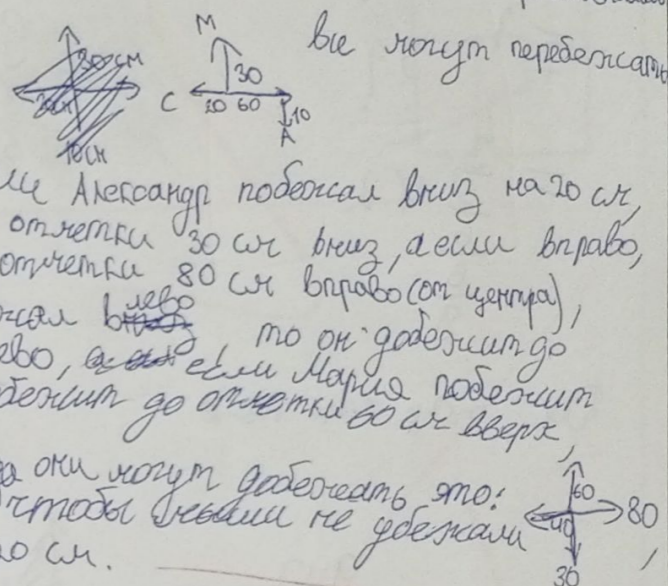 все могут перебежать
30 см
10 см
М
30
С 20 60
10
А
ли Александр побежал вниз на 20 см,
отметки 30 см вниз, а если вправо,
отметки 80 см вправо (от центра),
жал влево, то он добежит до
ево, если Мария побежит
бежит до отметки 60 см вверх,
да они могут добежать это:
чтобы мыши не убежали
0 см.
60
80
40
30